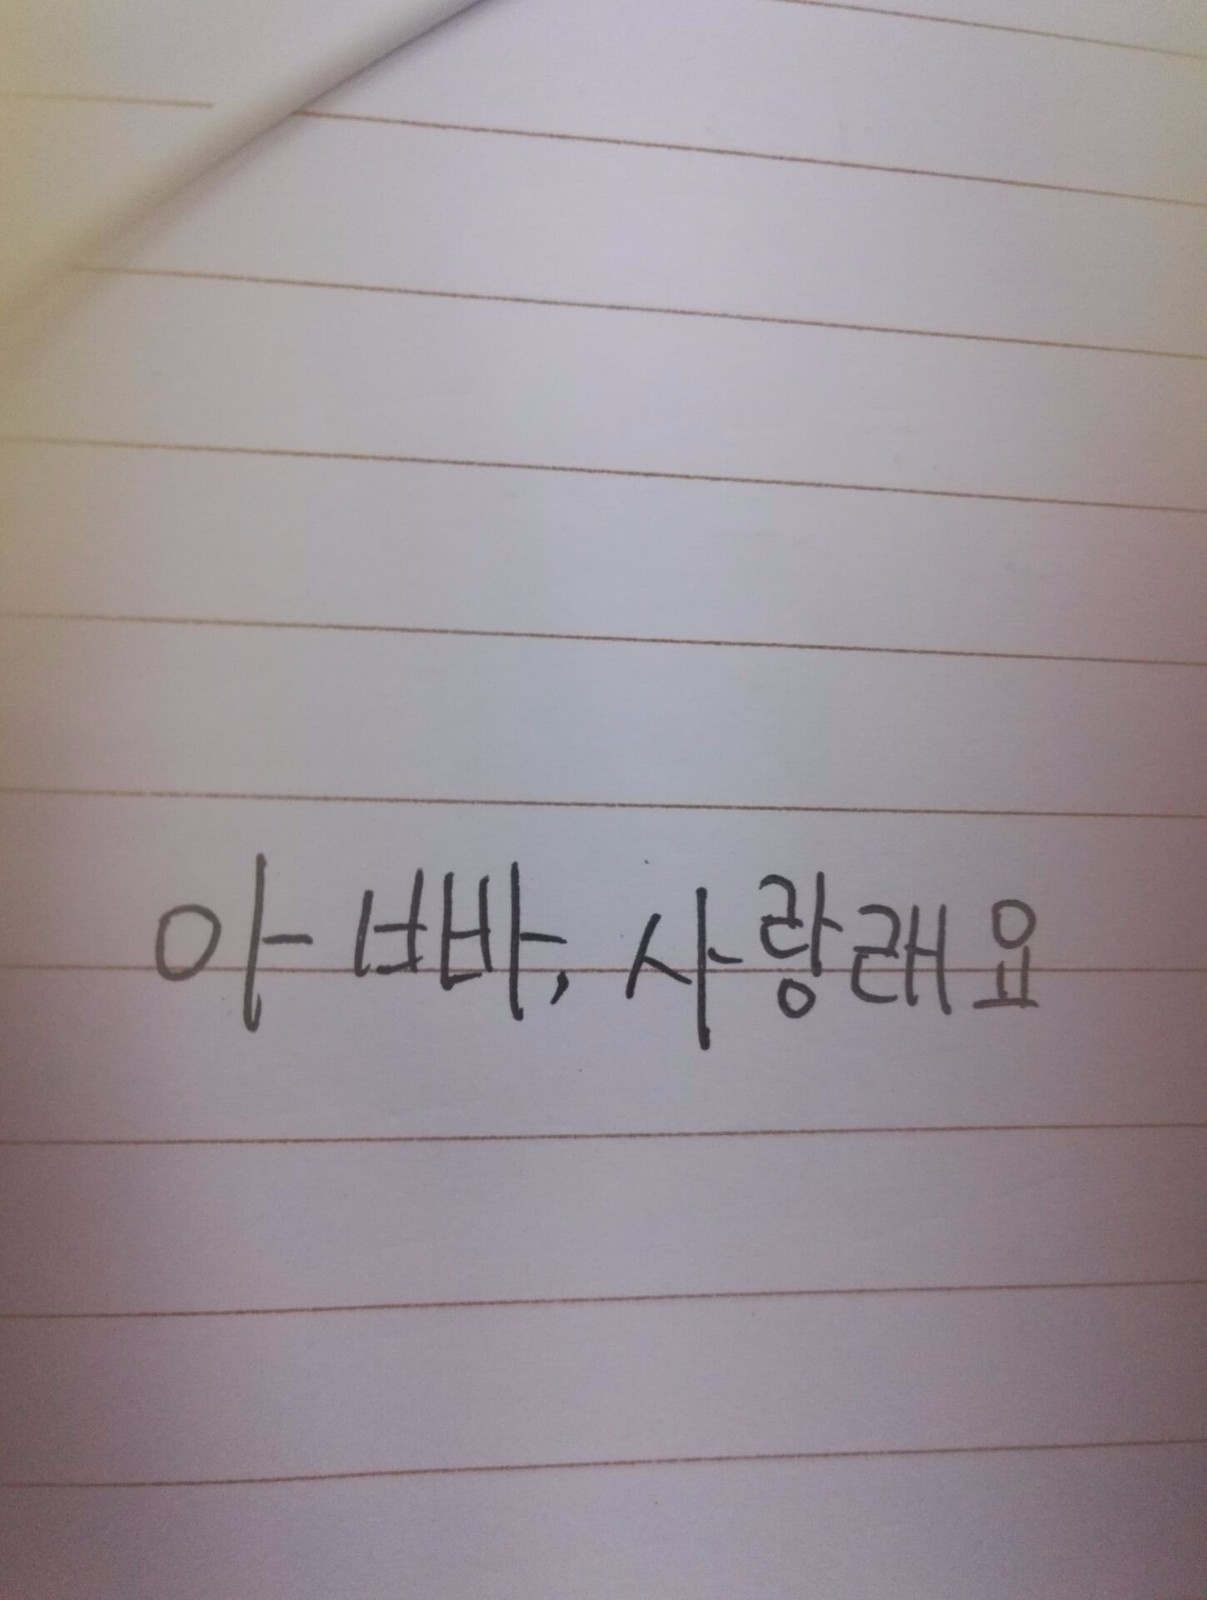 아빠, 사랑래요